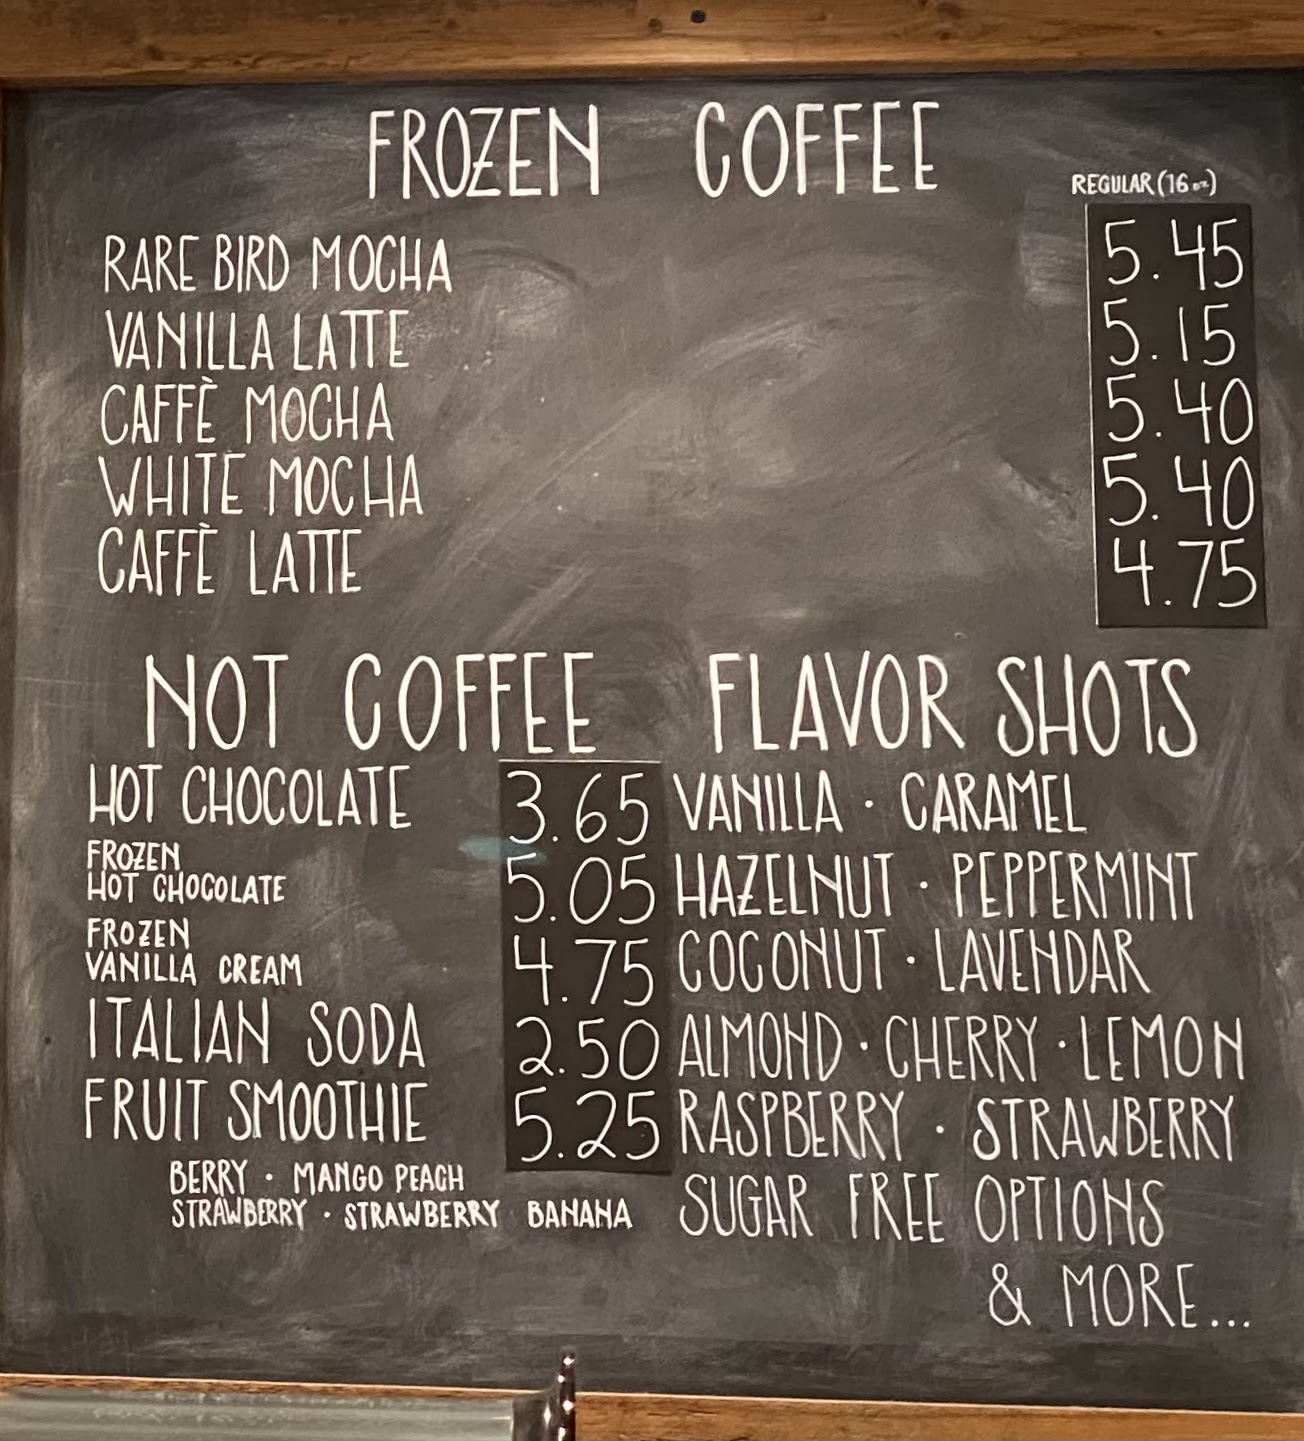 FROZEN COFFEE
REGULAR (16 oz)
RARE BIRD MOCHA 5.45
VANILLA LATTE 5.15
CAFFÈ MOCHA 5.40
WHITE MOCHA 5.40
CAFFÈ LATTE 4.75
NOT COFFEE
HOT CHOCOLATE 3.65
FROZEN
HOT CHOCOLATE 5.05
FROZEN
VANILLA CREAM 4.75
ITALIAN SODA 2.50
FRUIT SMOOTHIE 5.25
BERRY · MANGO PEACH
STRAWBERRY · STRAWBERRY BANANA
FLAVOR SHOTS
VANILLA · CARAMEL
HAZELNUT · PEPPERMINT
COCONUT · LAVENDAR
ALMOND · CHERRY · LEMON
RASPBERRY · STRAWBERRY
SUGAR FREE OPTIONS
& MORE...